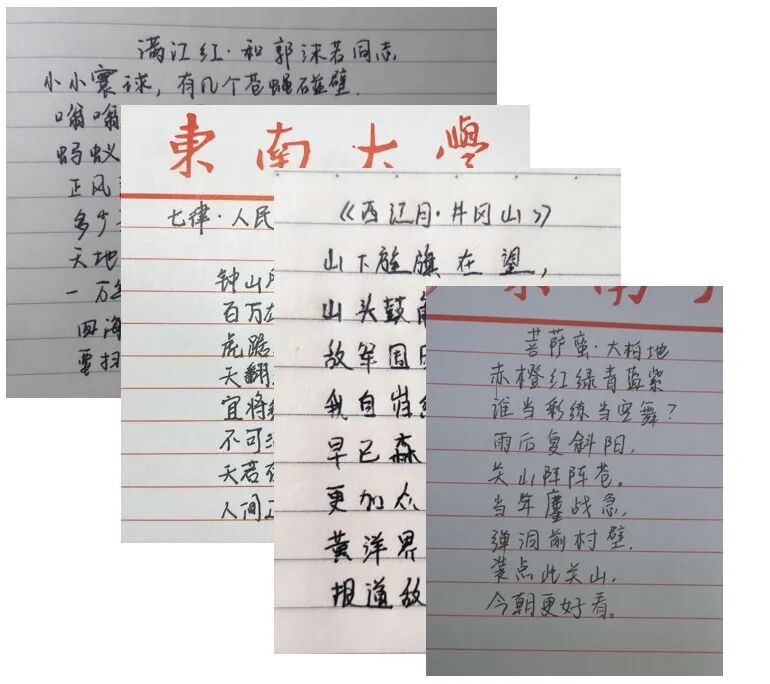 满江红·和郭沫若同志,
小小寰球，有几个苍蝇碰壁.
嗡嗡
蚂蚁
正风
多少
天地
一万
四海
要扫
東南大學
七律·人民
钟山
百万
虎踞
天翻
宜将
不可
天若
人间
《西江月·井冈山》
山下旌旗在望，
山头鼓
敌军围
我自岿
早已森
更加众
黄洋界
报道敌
南
菩萨蛮·大柏地
赤橙红绿青蓝紫
谁当彩练当空舞？
雨后复斜阳,
关山阵阵苍。
当年鏖战急,
弹洞前村壁.
装点此关山,
今朝更好看。